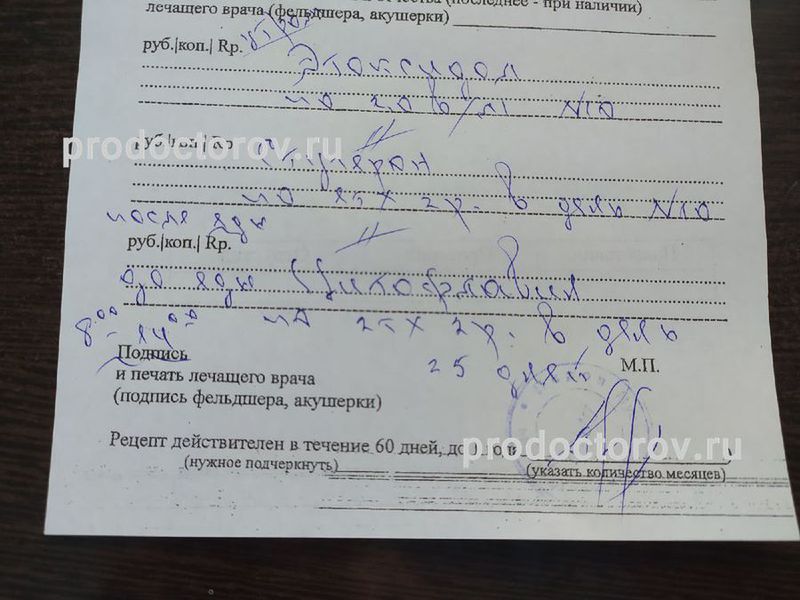 отчества (последнее - при наличии)
лечащего врача (фельдшера, акушерки)
утром
руб.|коп.| Rp. Этоксидол
по 2,0 в/м N10
prodoctorov.ru
руб.|коп.| Rp
по 1т х 2р. в день N10
после еды
руб.|коп.| Rp.
до еды Цитофлавин
8⁰⁰ - 14⁰⁰ по 2т х 2р. в день
25 дней
Подпись М.П.
и печать лечащего врача
(подпись фельдшера, акушерки)
Рецепт действителен в течение 60 дней, до 1 года
prodoctorov.ru
(нужное подчеркнуть) (указать количество месяцев)